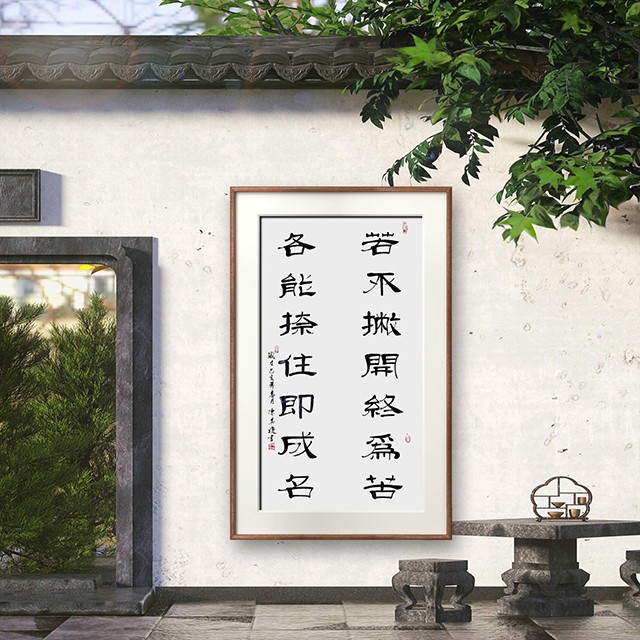 若不撇開終爲苦
各能捺住即成名